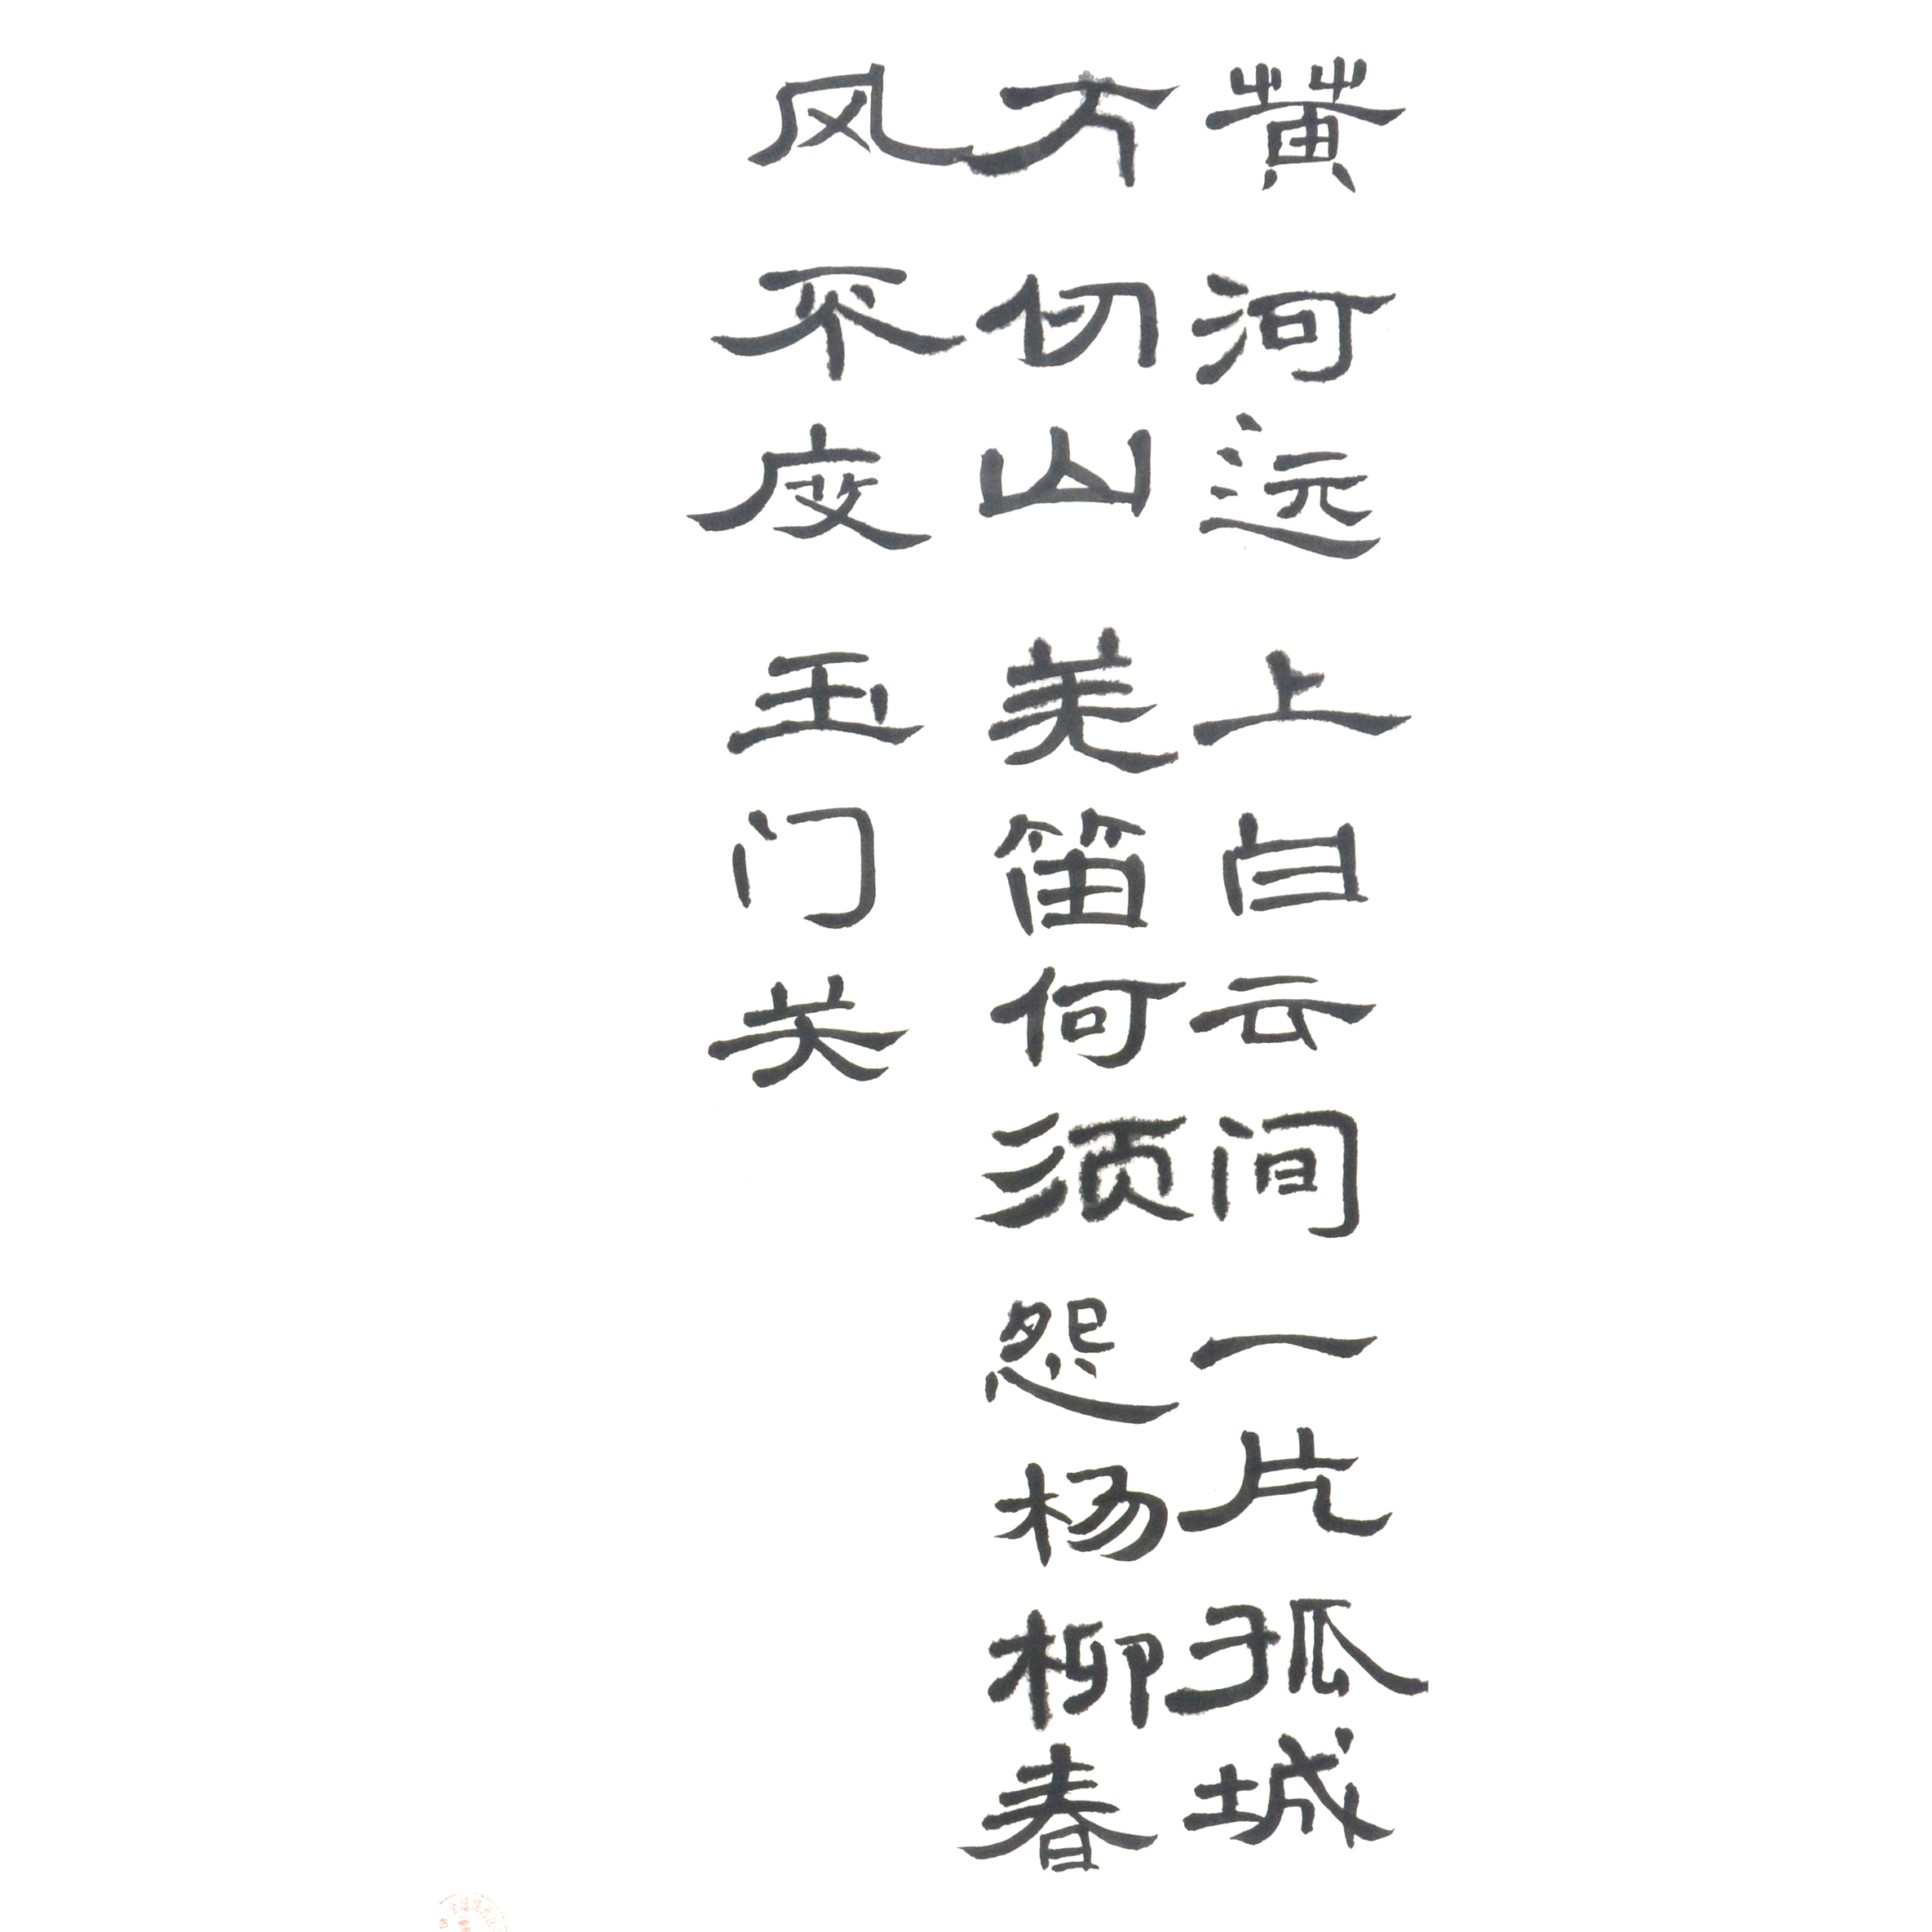 黄河远上白云间一片孤城
万仞山羌笛何须怨杨柳春
风不度玉门关